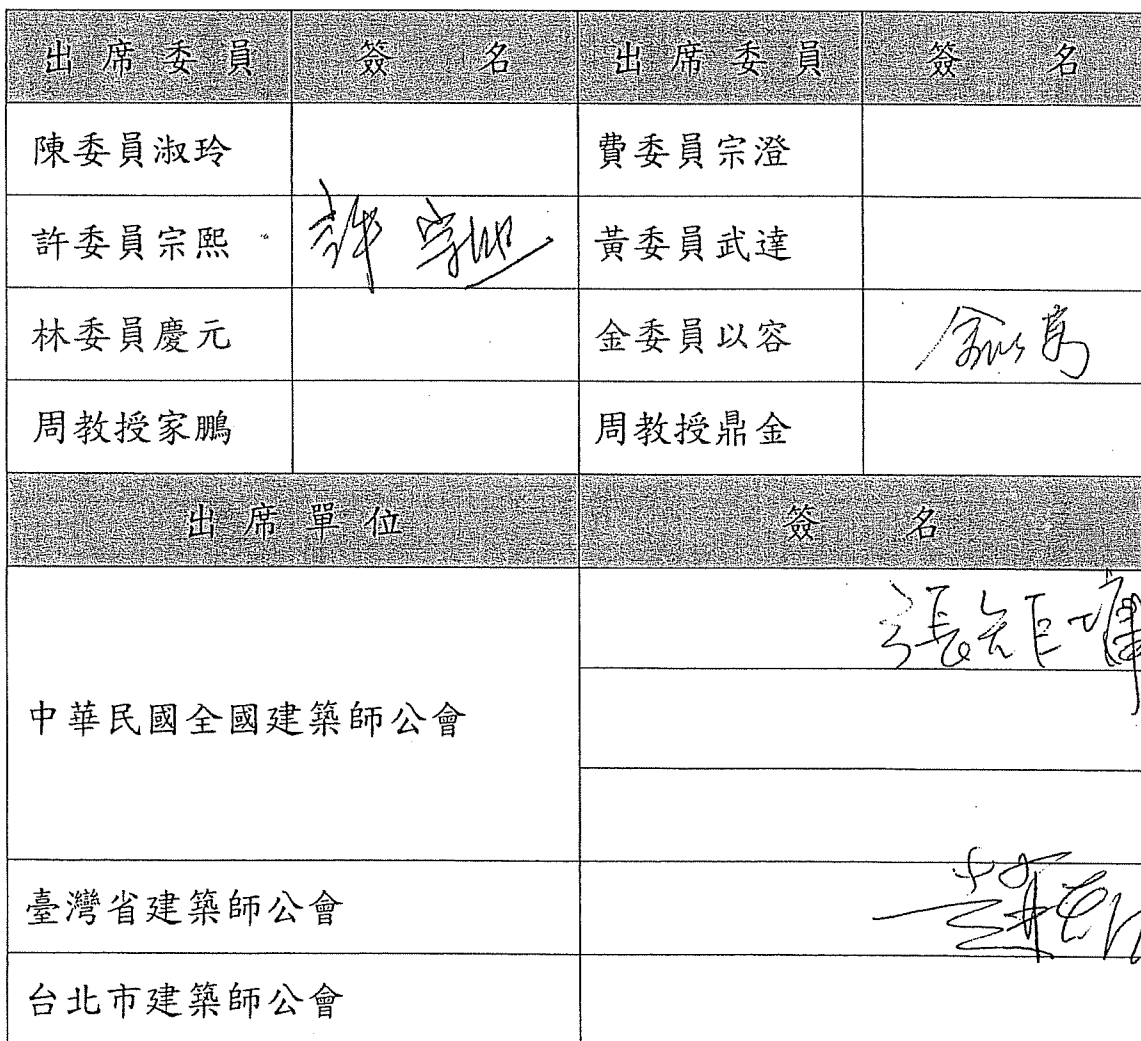 出席委員 簽名 出席委員 簽名
陳委員淑玲 費委員宗澄
許委員宗熙 許宗熙 黃委員武達
林委員慶元 金委員以容 金以容
周教授家鵬 周教授鼎金
出席單位 簽名
張矩墉
中華民國全國建築師公會
臺灣省建築師公會
台北市建築師公會